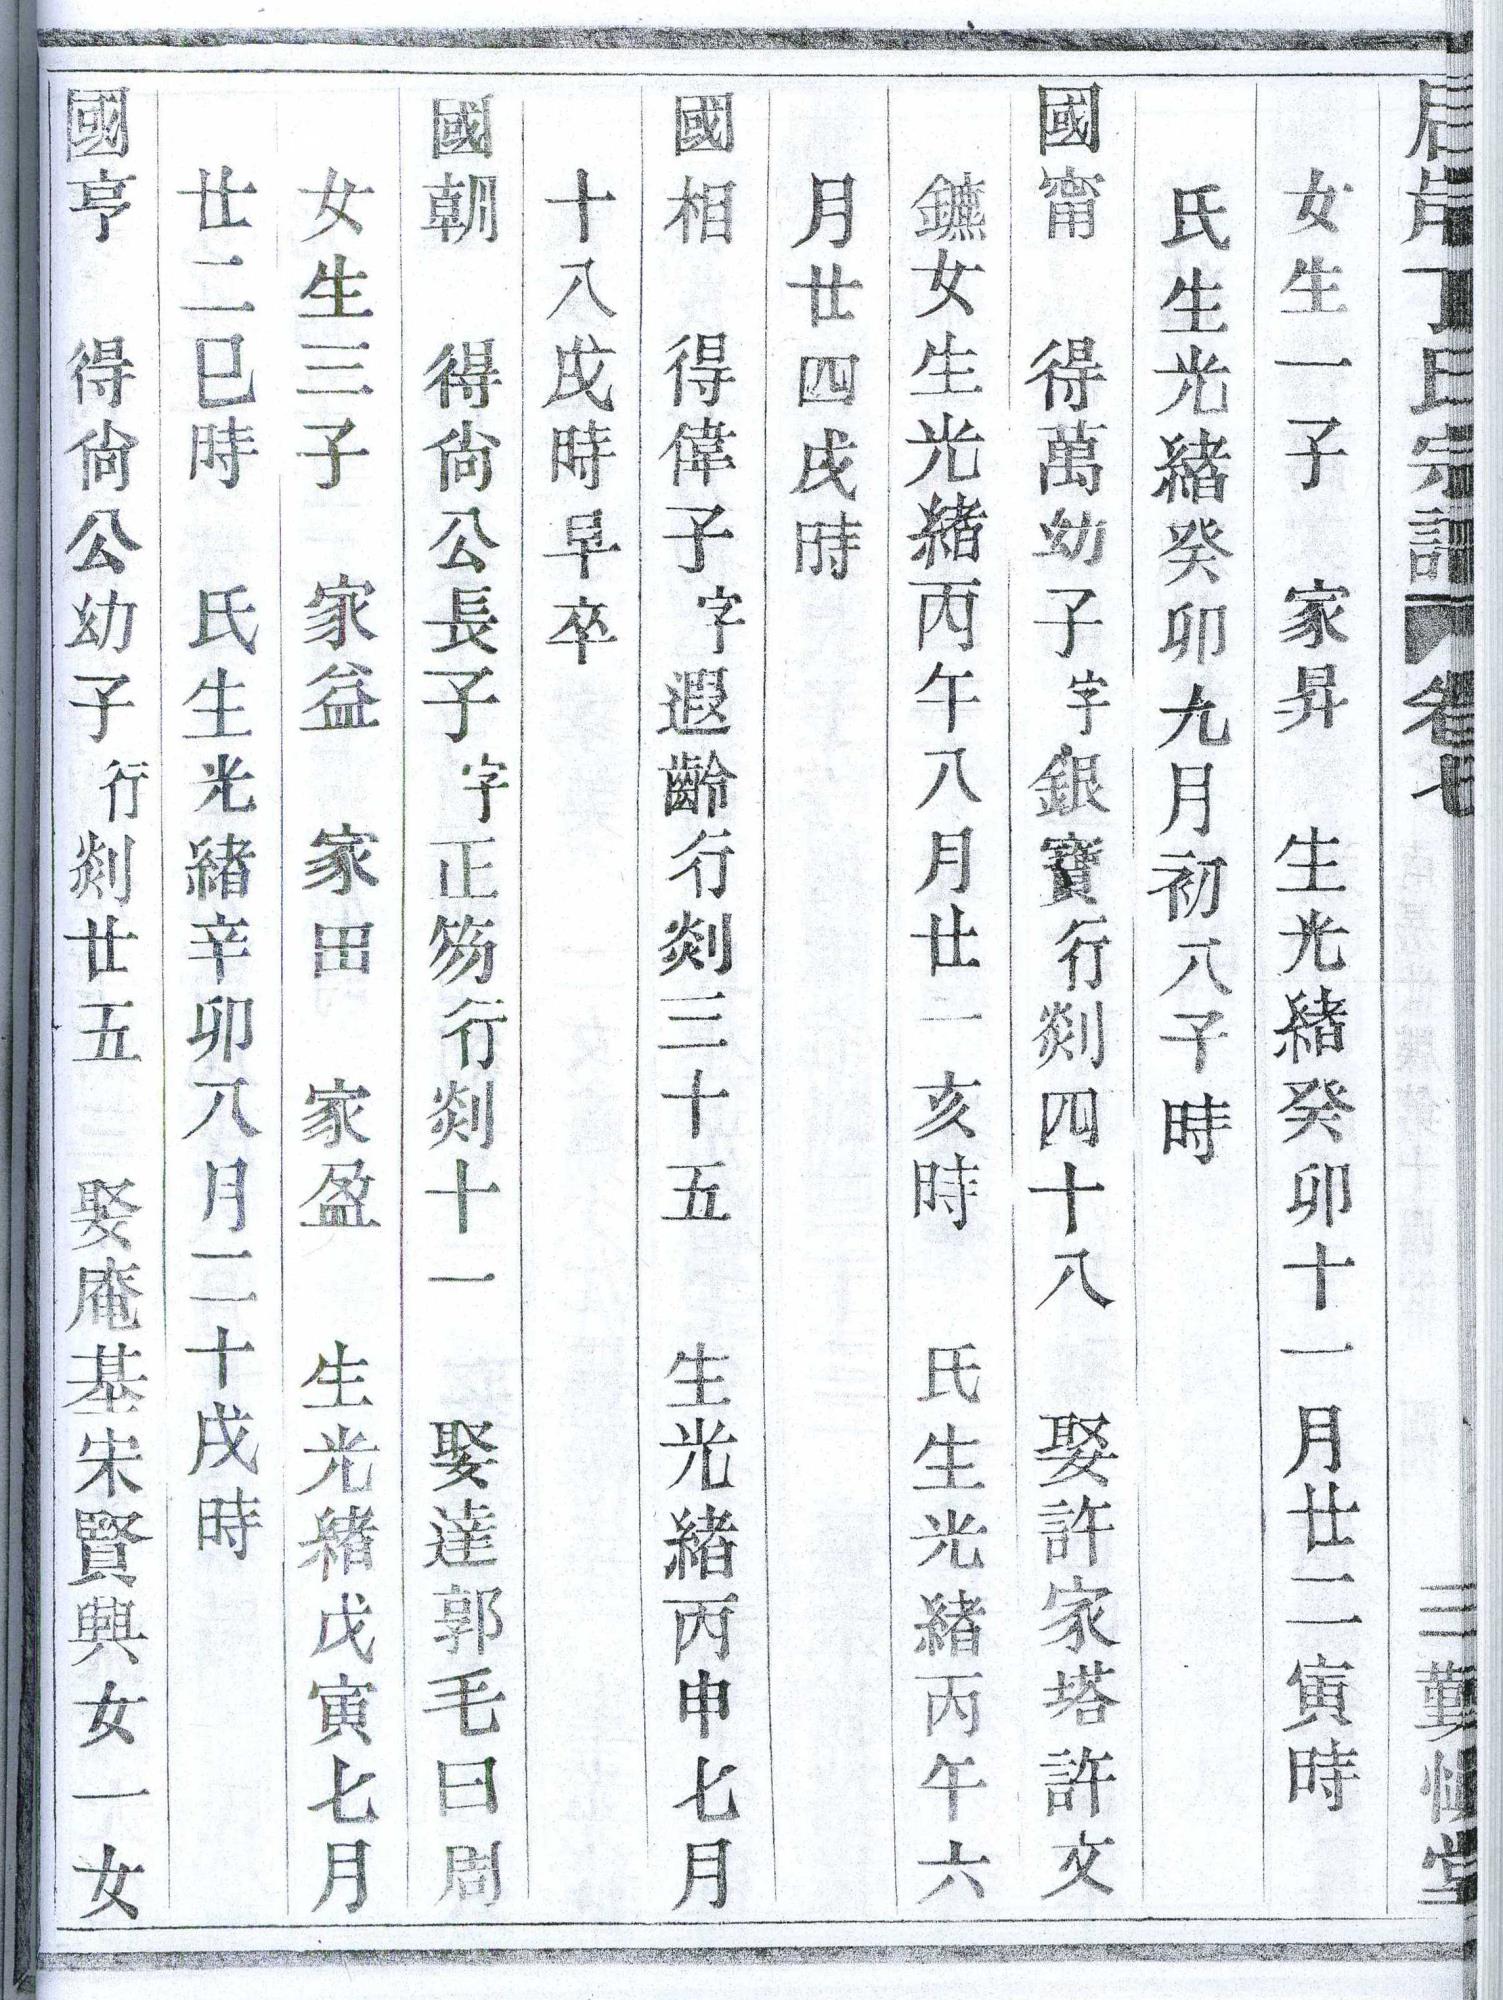 丁氏宗譜 卷七 三 勤慎堂
女生一子 家昇 生光緒癸卯十一月廿二寅時
氏生光緒癸卯九月初八子時
國甯 得萬幼子字銀寶行剡四十八 娶許家塔許文
鑣女生光緒丙午八月廿一亥時 氏生光緒丙午六
月廿四戌時
國相 得偉子字遐齡行剡三十五 生光緒丙申七月
十八戌時早卒
國朝 得尙公長子字正笏行剡十一 娶達郭毛曰周
女生三子 家益 家田 家盈 生光緒戊寅七月
廿二巳時 氏生光緒辛卯八月二十戌時
國亨 得尙公幼子行剡廿五 娶庵基宋賢興女一女